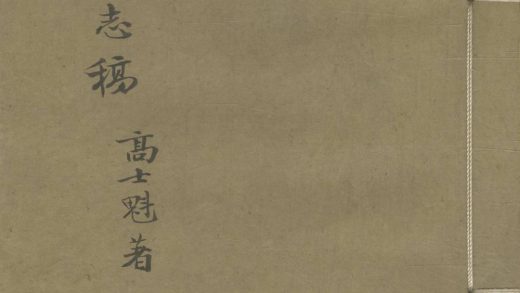 志稿
髙士魁著